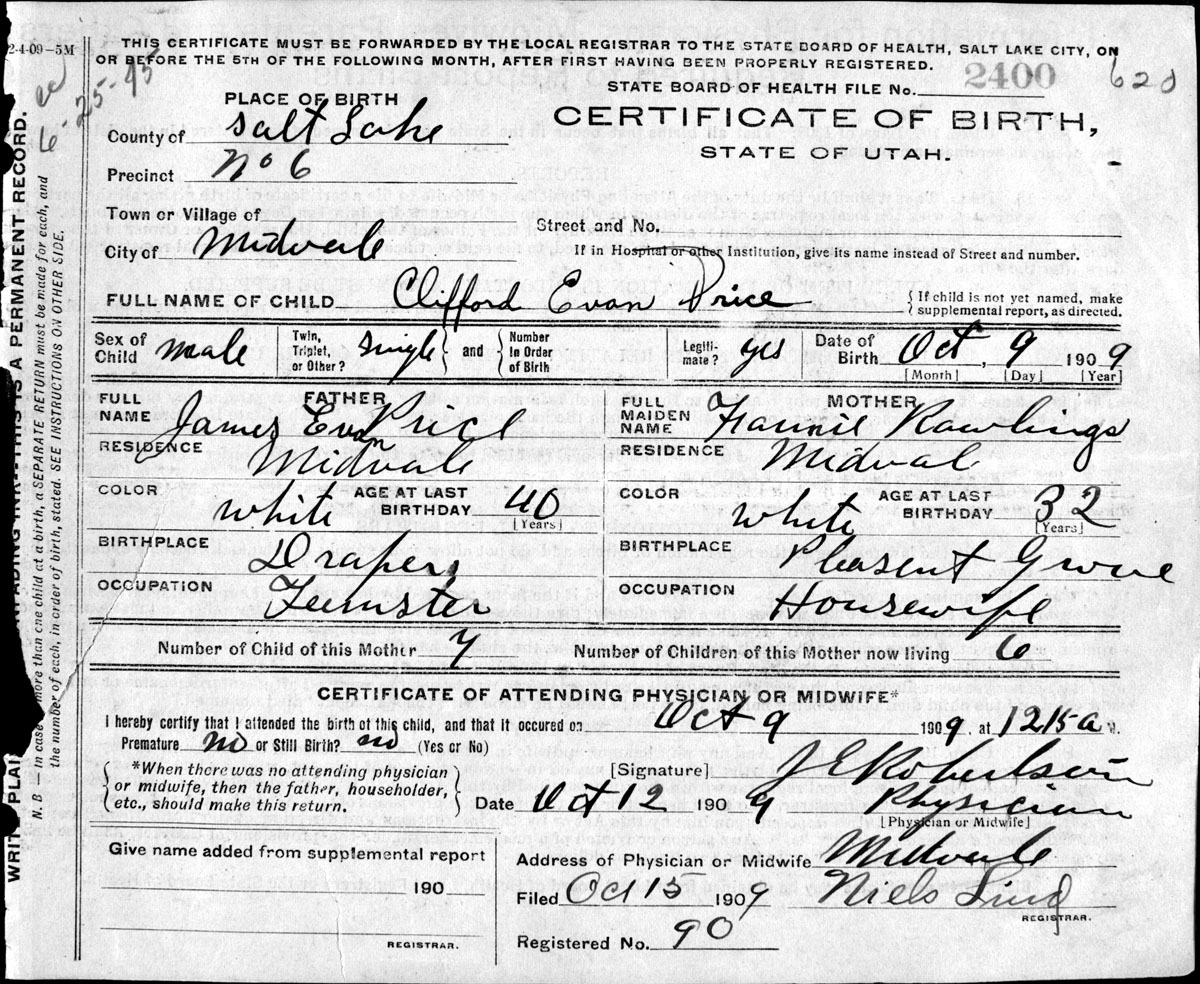 2-4-09-5M
THIS CERTIFICATE MUST BE FORWARDED BY THE LOCAL REGISTRAR TO THE STATE BOARD OF HEALTH, SALT LAKE CITY, ON
OR BEFORE THE 5TH OF THE FOLLOWING MONTH, AFTER FIRST HAVING BEEN PROPERLY REGISTERED.
6-25-45
STATE BOARD OF HEALTH FILE No. 2400 620
PLACE OF BIRTH
CERTIFICATE OF BIRTH,
STATE OF UTAH.
County of Salt Lake
Precinct No 6
Town or Village of
City of Midvale
Street and No.
If in Hospital or other Institution, give its name instead of Street and number.
FULL NAME OF CHILD Clifford Evan Price
{If child is not yet named, make
supplemental report, as directed.
Sex of Child male Twin, Triplet, or Other? single and Number In Order of Birth Legiti-mate? yes Date of Birth Oct, 9 1909
[Month] [Day] [Year]
FATHER
FULL NAME James Evan Price
RESIDENCE Midvale
COLOR white AGE AT LAST BIRTHDAY 40
[Years]
BIRTHPLACE Draper
OCCUPATION Teemster
MOTHER
FULL MAIDEN NAME Fannie Rawlings
RESIDENCE Midval
COLOR white AGE AT LAST BIRTHDAY 32
[Years]
BIRTHPLACE Pleasent Grove
OCCUPATION Housewife
Number of Child of this Mother 7 Number of Children of this Mother now living 6
CERTIFICATE OF ATTENDING PHYSICIAN OR MIDWIFE*
I hereby certify that I attended the birth of this child, and that it occured on Oct 9 1909, at 1215 a M.
Premature no or Still Birth? no (Yes or No)
{*When there was no attending physician
or midwife, then the father, householder,
etc., should make this return.}
[Signature] J E Robertson
Date Oct 12 1909 Physician
[Physician or Midwife]
Give name added from supplemental report
190
REGISTRAR.
Address of Physician or Midwife Midvale
Filed Oct 15 1909 Niels Lind
REGISTRAR.
Registered No. 90
THIS IS A PERMANENT RECORD.
N. B In case of more than one child at a birth, a SEPARATE RETURN must be made for each, and
the number of each, in order of birth, stated. SEE INSTRUCTIONS ON OTHER SIDE.